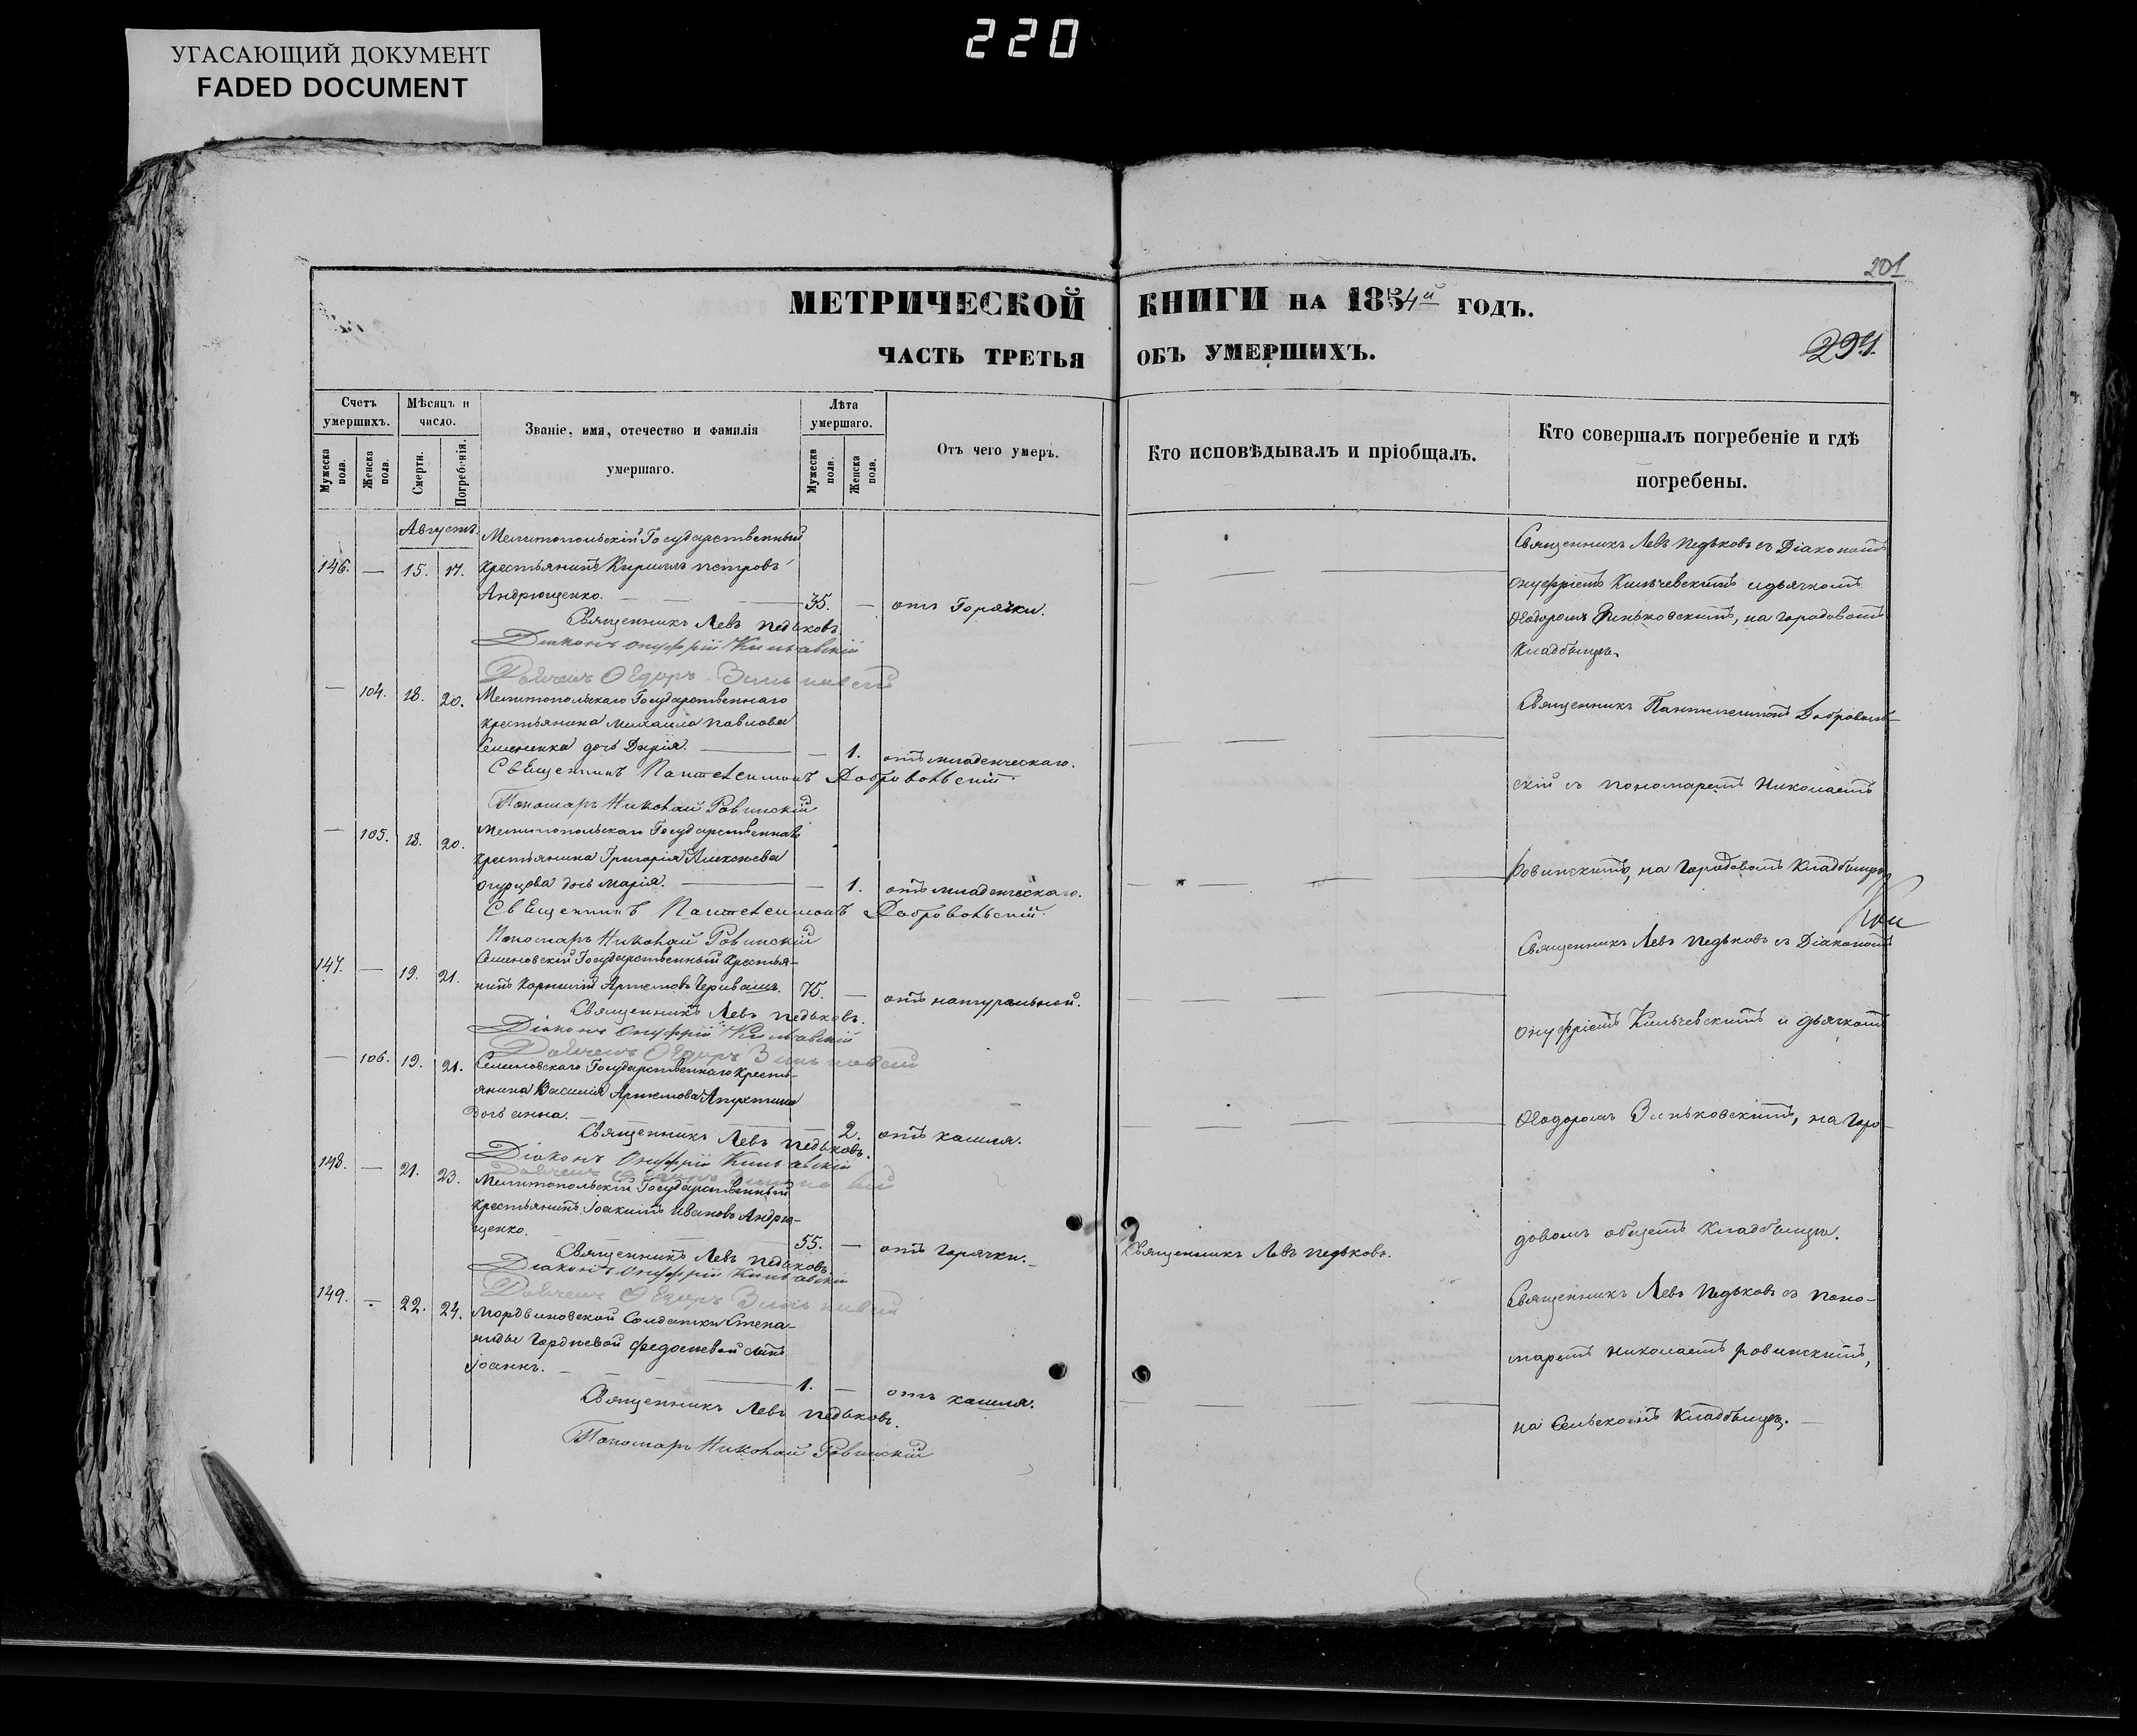 220
УГАСАЮЩИЙ ДОКУМЕНТ
FADED DOCUMENT
201
МЕТРИЧЕСКОЙ КНИГИ НА 1854й ГОДЪ.
ЧАСТЬ ТРЕТЬЯ ОБЪ УМЕРШИХЪ.
294.
Счетъ умершихъ.
Мужеска пола.
Женска пола.
Мѣсяцъ и число.
Смерти.
Погребенія.
Званіе, имя, отечество и фамилія умершаго.
Лѣта умершаго.
Мужеска пола.
Женска пола.
Отъ чего умеръ.
Кто исповѣдывалъ и пріобщалъ.
Кто совершалъ погребеніе и гдѣ погребены.
Августъ.
Мелитопольскій Государственный
146. — 15. 17. крестьянинъ Кирилъ Петровъ
Андрющенко. 35. — отъ Горячки.
Священникъ Левъ Педьковъ
Діаконъ Онуфрій
Священникъ Левъ Педьковъ съ Діакономъ
Онуфріемъ Кильчевскимъ и дьячкомъ
Ѳеодоромъ Зиньковскимъ, на городовомъ
Кладбищѣ.
— 104. 18. 20. Мелитопольскаго Государственнаго
крестьянина Михаила Павлова
Семененка дочь Дарія. — 1. отъ младенческаго.
Священникъ Пантелеимонъ Добровольскій
Пономарь Николай Ровинскій
— 105. 18. 20. Мелитопольскаго Государственнаго
крестьянина Григорія Алексѣева
Огурцова дочь Марія. — 1. отъ младенческаго.
Священникъ Пантелеимонъ Добровольскій
Пономарь Николай Ровинскій
Священникъ Пантелеимонъ Добровольскій
съ пономаремъ Николаемъ
Ровинскимъ, на городовомъ Кладбищѣ
147. — 19. 21. Семеновскій Государственный крестья-
нинъ Корнилій Артемовъ 75. — отъ натуральной.
Священникъ Левъ Педьковъ.
Діаконъ Онуфрій
— 106. 19. 21. Семеновскаго Государственнаго кресть-
янина Василія Артемова
дочь Анна. — 2. отъ кашля.
Священникъ Левъ Педьковъ.
Діаконъ Онуфрій
148. — 21. 23. Мелитопольскій Государственный
крестьянинъ Іоакимъ Ивановъ Андрю-
щенко. 55. — отъ горячки.
Священникъ Левъ Педьковъ.
Священникъ Левъ Педьковъ
Діаконъ Онуфрій
Священникъ Левъ Педьковъ съ Діакономъ
Онуфріемъ Кильчевскимъ и дьячкомъ
Ѳеодоромъ Зиньковскимъ, на горо-
довомъ общемъ Кладбищѣ.
149. — 22. 24. Мордвиновской Солдатки Степа-
ниды Гордѣевой Федосѣевой сынъ
Іоаннъ. 1. — отъ кашля.
Священникъ Левъ Педьковъ.
Пономарь Николай Ровинскій
Священникъ Левъ Педьковъ съ поно-
маремъ Николаемъ Ровинскимъ,
на Сельскомъ Кладбищѣ.